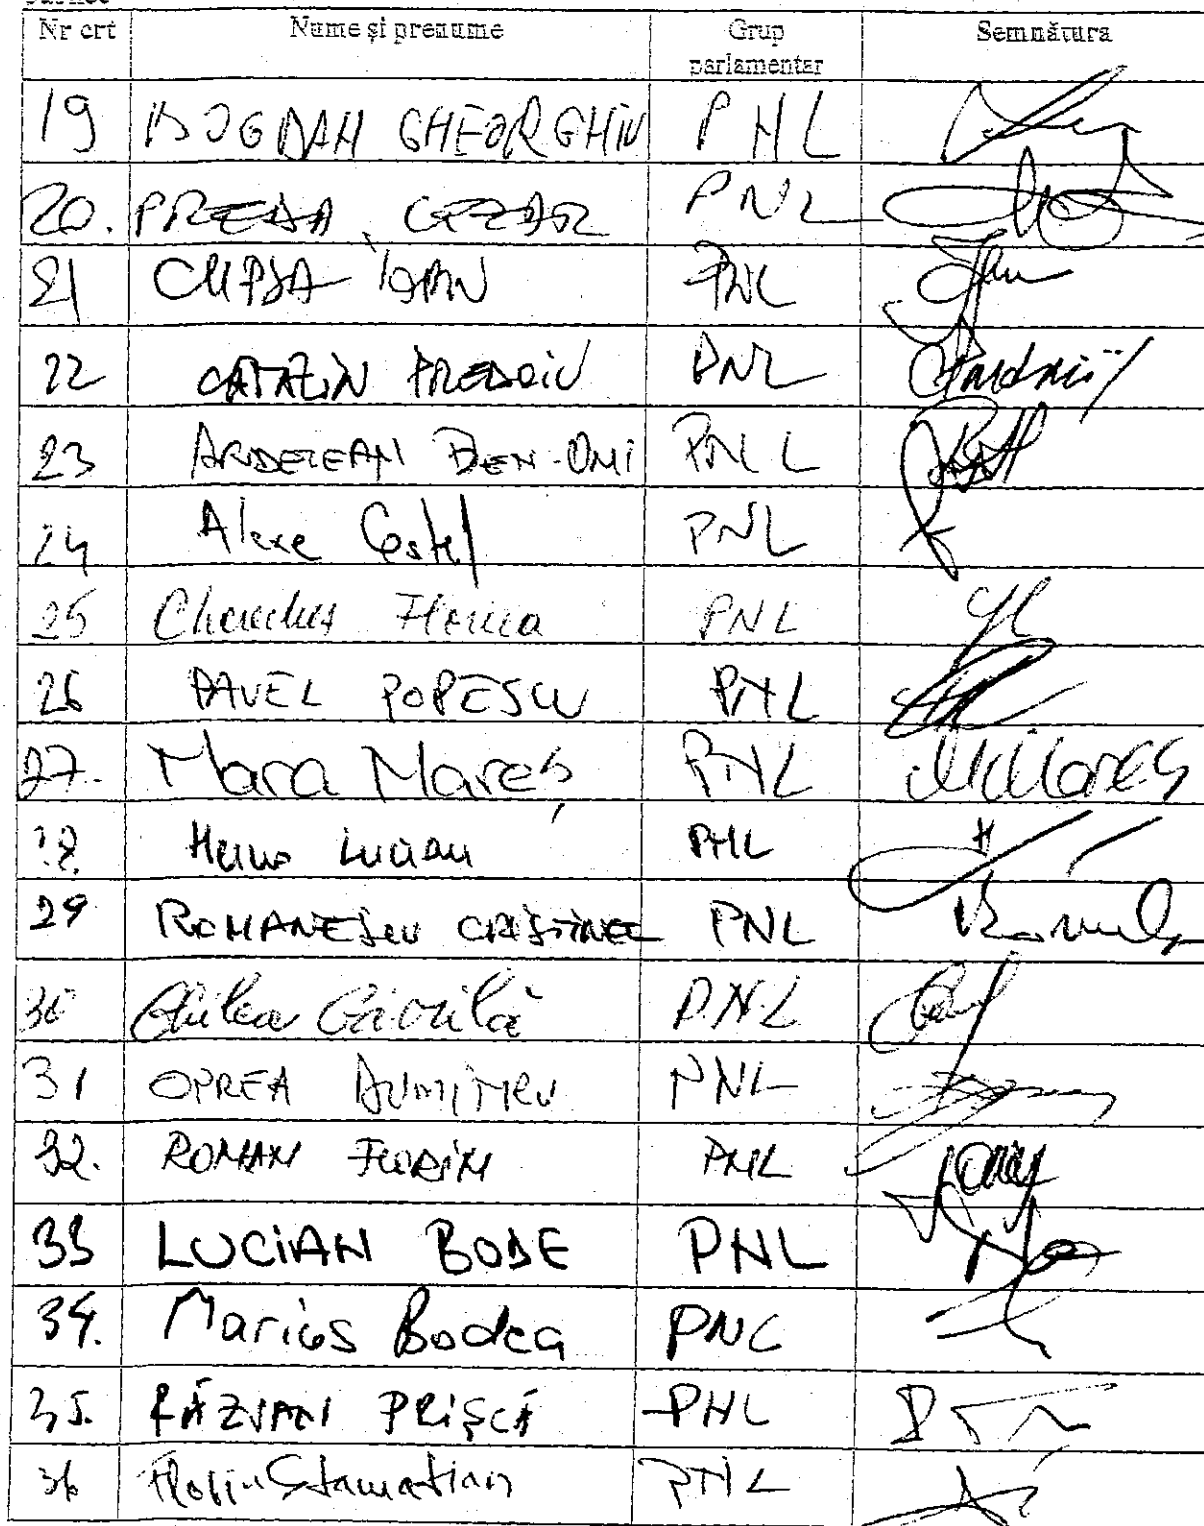 Nr crt Nume și prenume Grup parlamentar Semnătura
19 BOGDAN GHEORGHIU PNL
20. PREDA CEZAR PNL
21 CUPȘA IOAN PNL
22 CATALIN PREDOIU PNL
23 ARDELEAN BEN-ONI PNL
24 Alexe Costel PNL
25 Florica PNL
26 PAVEL POPESCU PNL
27. Mara Mareș PNL MMareș
28. Heius Lucian PNL
29 ROMANESCU CRISTINEL PNL
30 Ghilea Găvrilă PNL
31 OPREA DUMITRU PNL
32. ROMAN FLORIN PNL
33 LUCIAN BODE PNL
34. Marius Bodea PNL
35. RĂZVAN PRIȘCĂ PNL
36 Florin Stamatian PNL